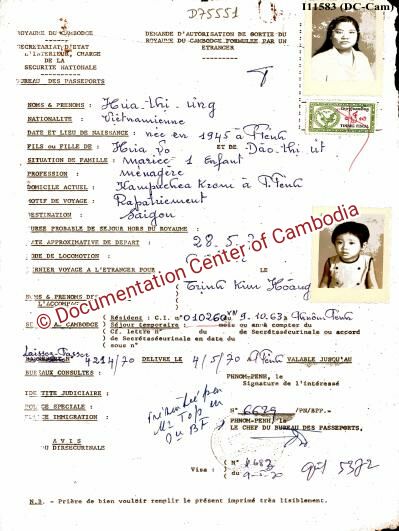 D75551
I11583 (DC-Cam)
ROYAUME DU CAMBODGE
SECRETARIAT D'ETAT
L'INTERIEUR, CHARGE
DE LA
SECURITE NATIONALE
BUREAU DES PASSEPORTS
DEMANDE D'AUTORISATION DE SORTIE DU
ROYAUME DU CAMBODGE FORMULEE PAR UN
ETRANGER
NOMS & PRENOMS : Hua-thi-ưng
NATIONALITE : Vietnamienne
DATE ET LIEU DE NAISSANCE : née en 1945 à P.Penh
FILS ou FILLE DE : Hua Vo ET DE Dào-thị út
SITUATION DE FAMILLE : mariée 1 Enfant
PROFESSION : ménagère
DOMICILE ACTUEL : Kampuchea Krom à P.Penh
MOTIF DE VOYAGE : Rapatriement
DESTINATION : Saigon
DUREE PROBABLE DE SEJOUR HORS DU ROYAUME :
DATE APPROXIMATIVE DE DEPART : 28.5.
MODE DE LOCOMOTION :
DERNIER VOYAGE A L'ETRANGER POUR LE
NOMS & PRENOMS DE
L'ACCOMPAG Trinh Kim Hoàng
© Documentation Center of Cambodia
AU CAMBODGE
Résident : C.I. n° 010260 VN du 9.10.63 à Phnom Penh
Séjour temporaire : mois ou année compter
Cf. lettre n° du de Secretaséeurité ou accord
de Secretaséeurité en date du
sous n°
Laissez-Passer
4214/70 DELIVRE LE 4/5/70 à P.Penh VALABLE JUSQU'AU
BUREAUX CONSULTES :
PHNOM-PENH, le
Signature de l'intéressé
IDENTITE JUDICIAIRE :
POLICE SPECIALE :
POLICE IMMIGRATION :
N° 6629 /PN/BPP.-
PHNOM-PENH, le
LE CHEF DU BUREAU DES PASSEPORTS,
AVIS
DU DIRSECURINALE
Visa : N°
du
N.B. - Prière de bien vouloir remplir le présent imprimé très lisiblement.